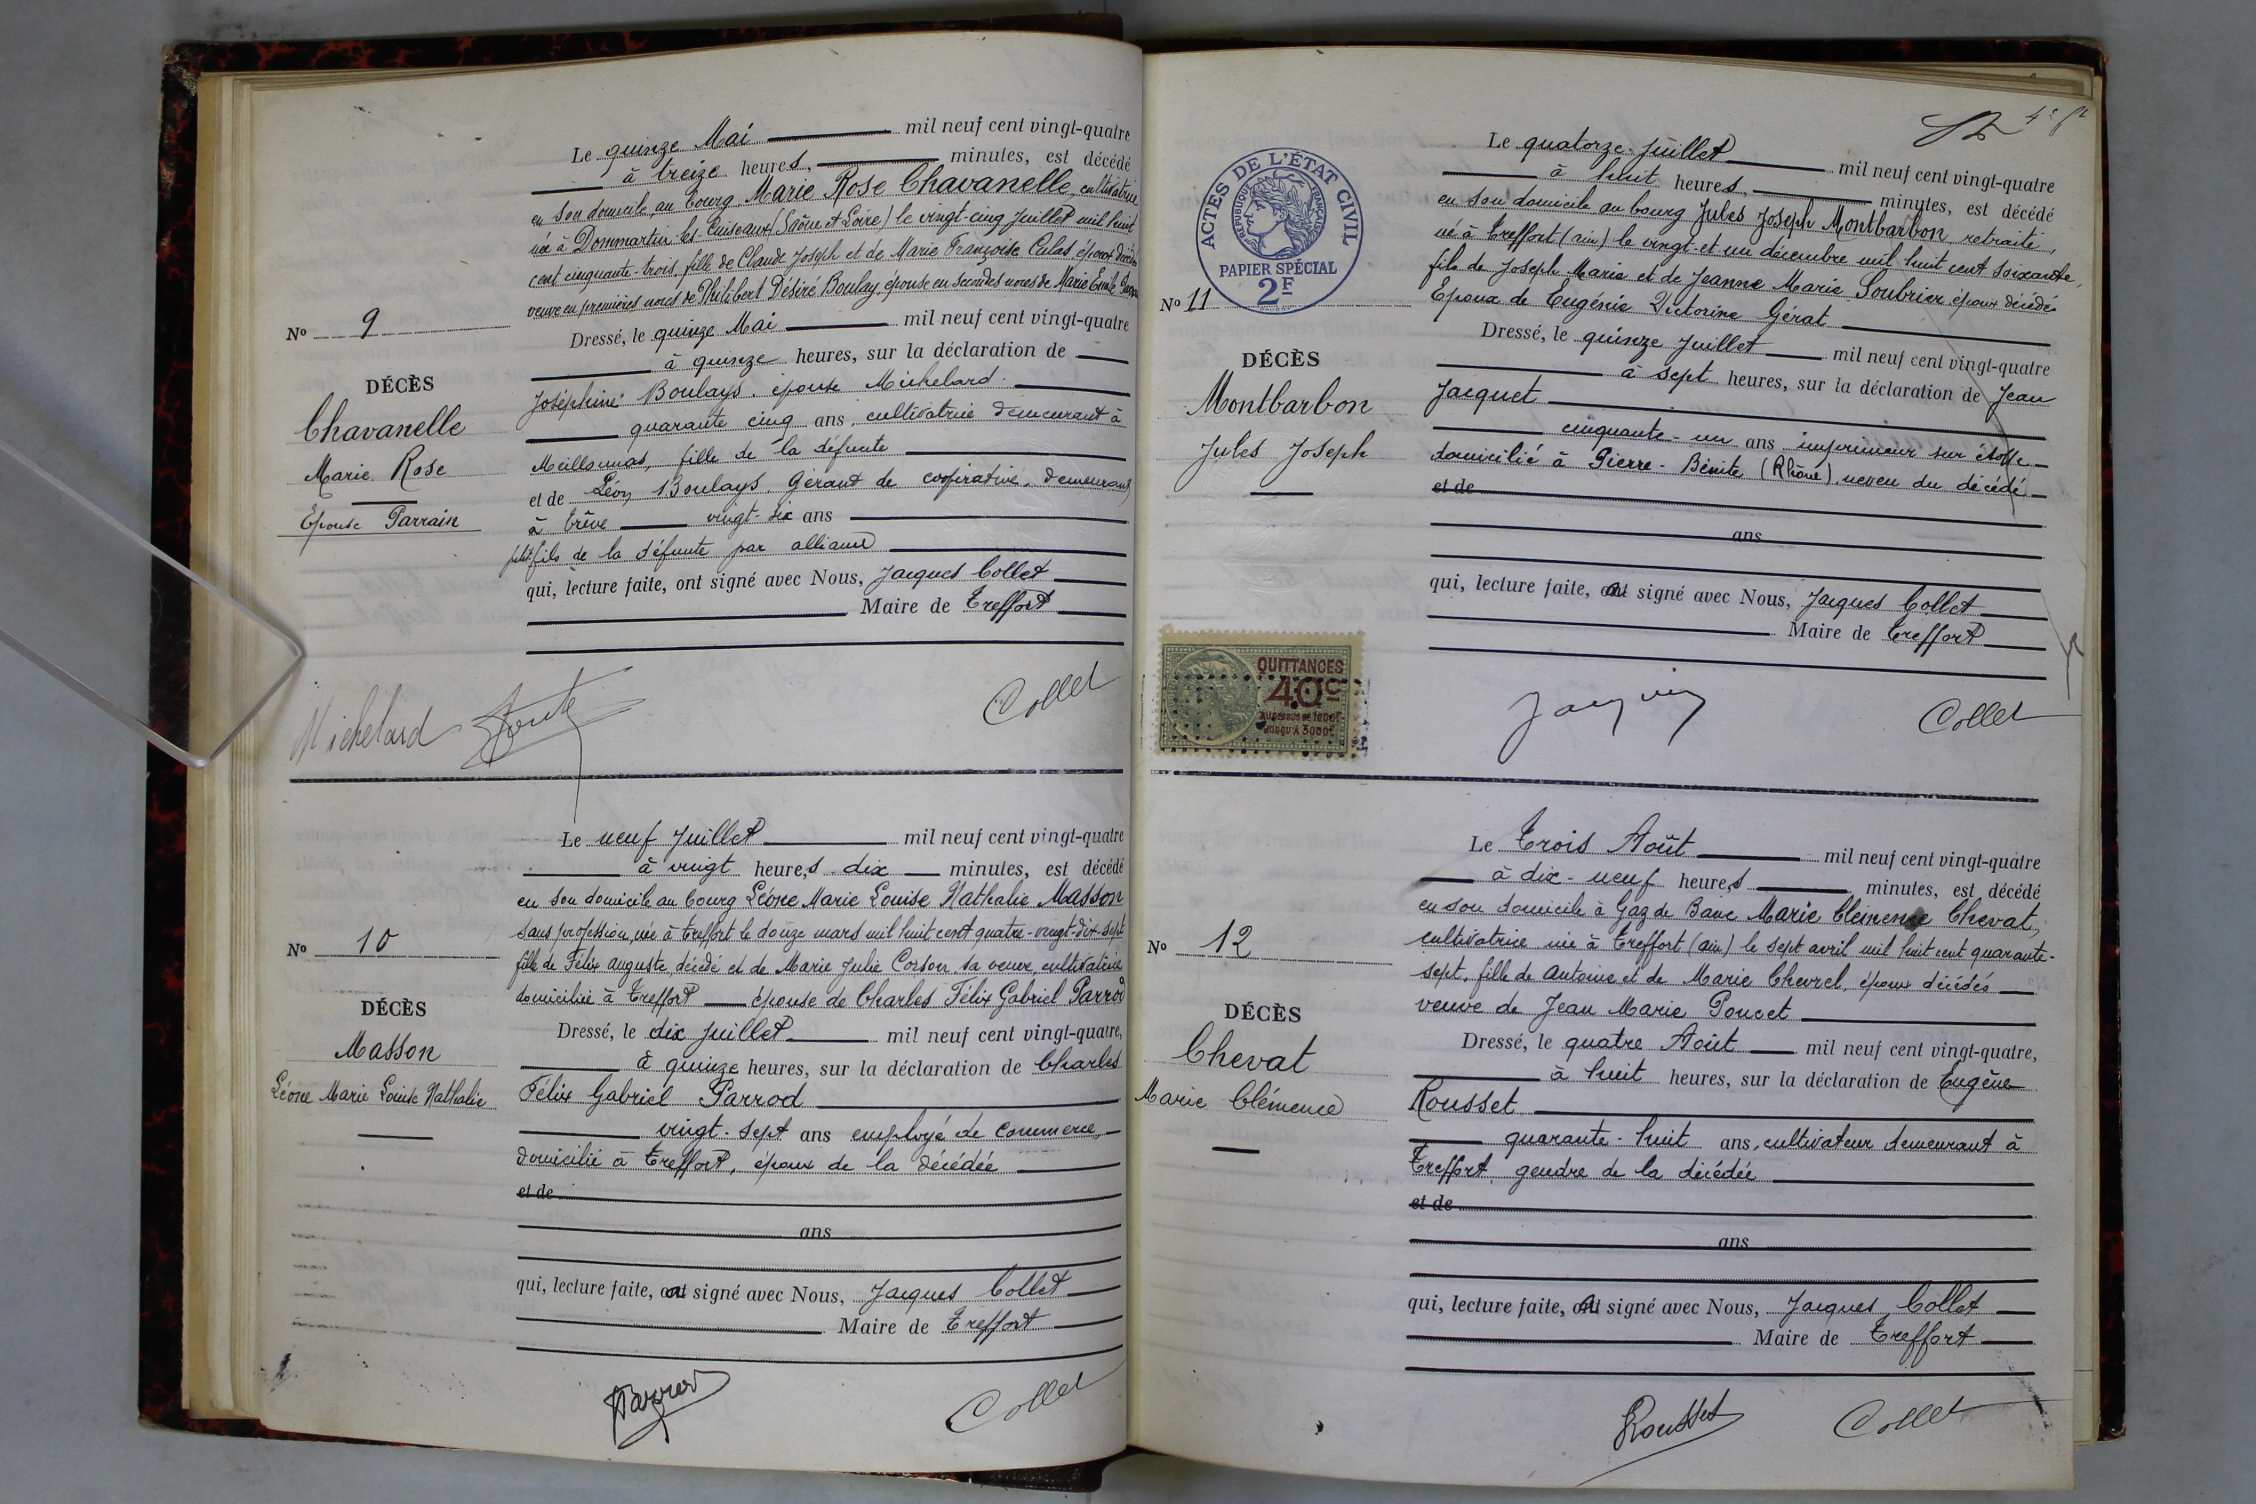 Le quinze Mai mil neuf cent vingt-quatre
à treize heures, minutes, est décédé
en son domicile, au bourg Marie Rose Chavanelle, cultivatrice
née à Dommartin-les-Cuiseaux (Saône et Loire) le vingt-cinq Juillet mil huit
cent cinquante-trois, fille de Claude Joseph et de Marie Françoise Calas époux
veuve en premières noces de Philibert Désiré Boulay, épouse en secondes noces de Marie Emile
Nº 9
Dressé, le quinze Mai mil neuf cent vingt-quatre
à quinze heures, sur la déclaration de
DÉCÈS
Chavanelle
Marie Rose
Epouse Parrain
Joséphine Boulays, épouse Michelard
quarante cinq ans, cultivatrice demeurant à
Meillonnas, fille de la défunte
et de Léon Boulays, Gérant de coopérative, demeurant
à vingt-six ans
petit fils de la défunte par alliance
qui, lecture faite, ont signé avec Nous, Jacques Collet
Maire de Treffort
Michelard
Collet
Le neuf Juillet mil neuf cent vingt-quatre
à vingt heures dix minutes, est décédé
en son domicile au bourg Léone Marie Louise Nathalie Masson
sans profession, née à Treffort le douze mars mil huit cent quatre-vingt-dix-sept
fille de Félix Auguste, décédé et de Marie Julie Corson sa veuve, cultivatrice
domiciliée à Treffort épouse de Charles Félix Gabriel Parrod
Nº 10
DÉCÈS
Masson
Léone Marie Louise Nathalie
Dressé, le dix Juillet mil neuf cent vingt-quatre,
à quinze heures, sur la déclaration de Charles
Félix Gabriel Parrod
vingt-sept ans employé de commerce,
domicilié à Treffort, époux de la décédée
et de
ans
qui, lecture faite, a signé avec Nous, Jacques Collet
Maire de Treffort
Parrod
Collet
12
Le quatorze Juillet mil neuf cent vingt-quatre
à huit heures, minutes, est décédé
en son domicile au bourg Jules Joseph Montbarbon, retraité,
né à Treffort (ain) le vingt-et-un décembre mil huit cent soixante,
fils de Joseph Marie et de Jeanne Marie Soubrier, époux décédés
Epoux de Eugénie Victorine Gérat
ACTES DE L'ÉTAT CIVIL
RÉPUBLIQUE FRANÇAISE
PAPIER SPÉCIAL
2F
Nº 11
DÉCÈS
Montbarbon
Jules Joseph
Dressé, le quinze Juillet mil neuf cent vingt-quatre
à sept heures, sur la déclaration de Jean
Jacquet
cinquante-un ans imprimeur sur étoffe
domicilié à Pierre-Bénite (Rhône), neveu du décédé
et de
ans
qui, lecture faite, a signé avec Nous, Jacques Collet
Maire de Treffort
QUITTANCES
40c
Collet
Le Trois Août mil neuf cent vingt-quatre
à dix-neuf heures minutes, est décédé
en son domicile à Gaz de Banc Marie Clémence Chevat,
cultivatrice née à Treffort (ain) le sept avril mil huit cent quarante-
sept, fille de Antoine et de Marie Chevrel, époux décédés
veuve de Jean Marie Poncet
Nº 12
DÉCÈS
Chevat
Marie Clémence
Dressé, le quatre Août mil neuf cent vingt-quatre,
à huit heures, sur la déclaration de Eugène
Rousset
quarante-huit ans, cultivateur demeurant à
Treffort, gendre de la décédée
et de
ans
qui, lecture faite, a signé avec Nous, Jacques Collet
Maire de Treffort
Rousset
Collet